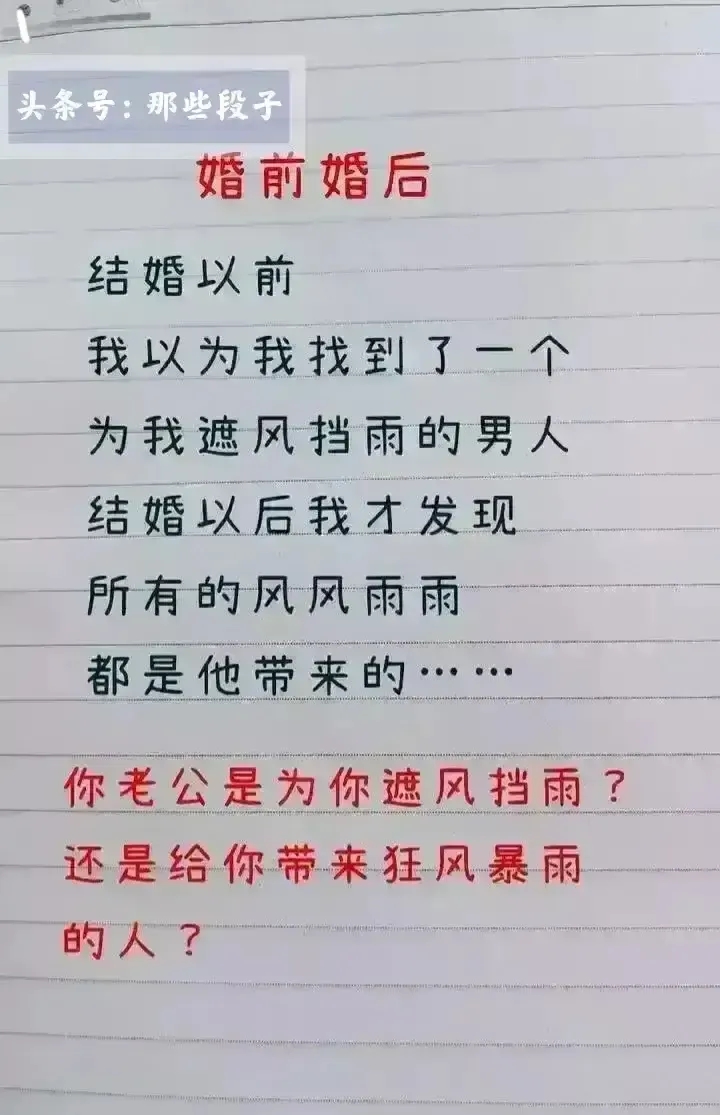 头条号：那些段子
婚前婚后
结婚以前
我以为我找到了一个
为我遮风挡雨的男人
结婚以后我才发现
所有的风风雨雨
都是他带来的……
你老公是为你遮风挡雨？
还是给你带来狂风暴雨
的人？